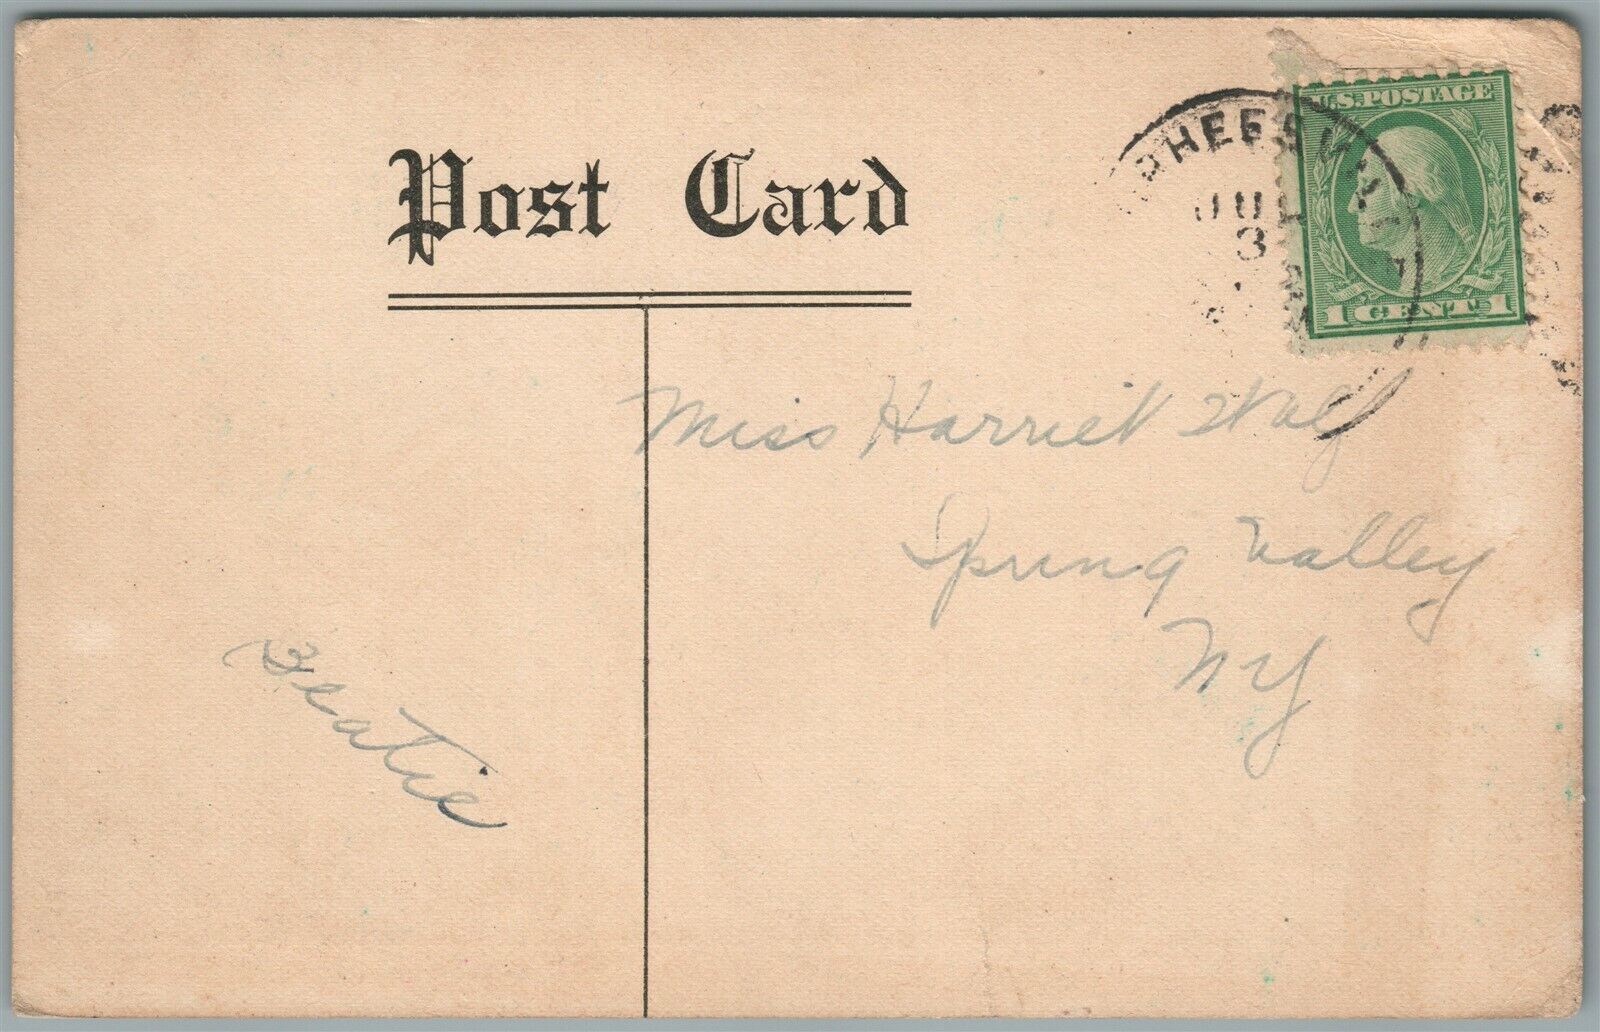 Post Card
U.S. POSTAGE
JUL
3
1 CENT 1
Miss Harriet Wolf
Spring Valley
NY
Beatie